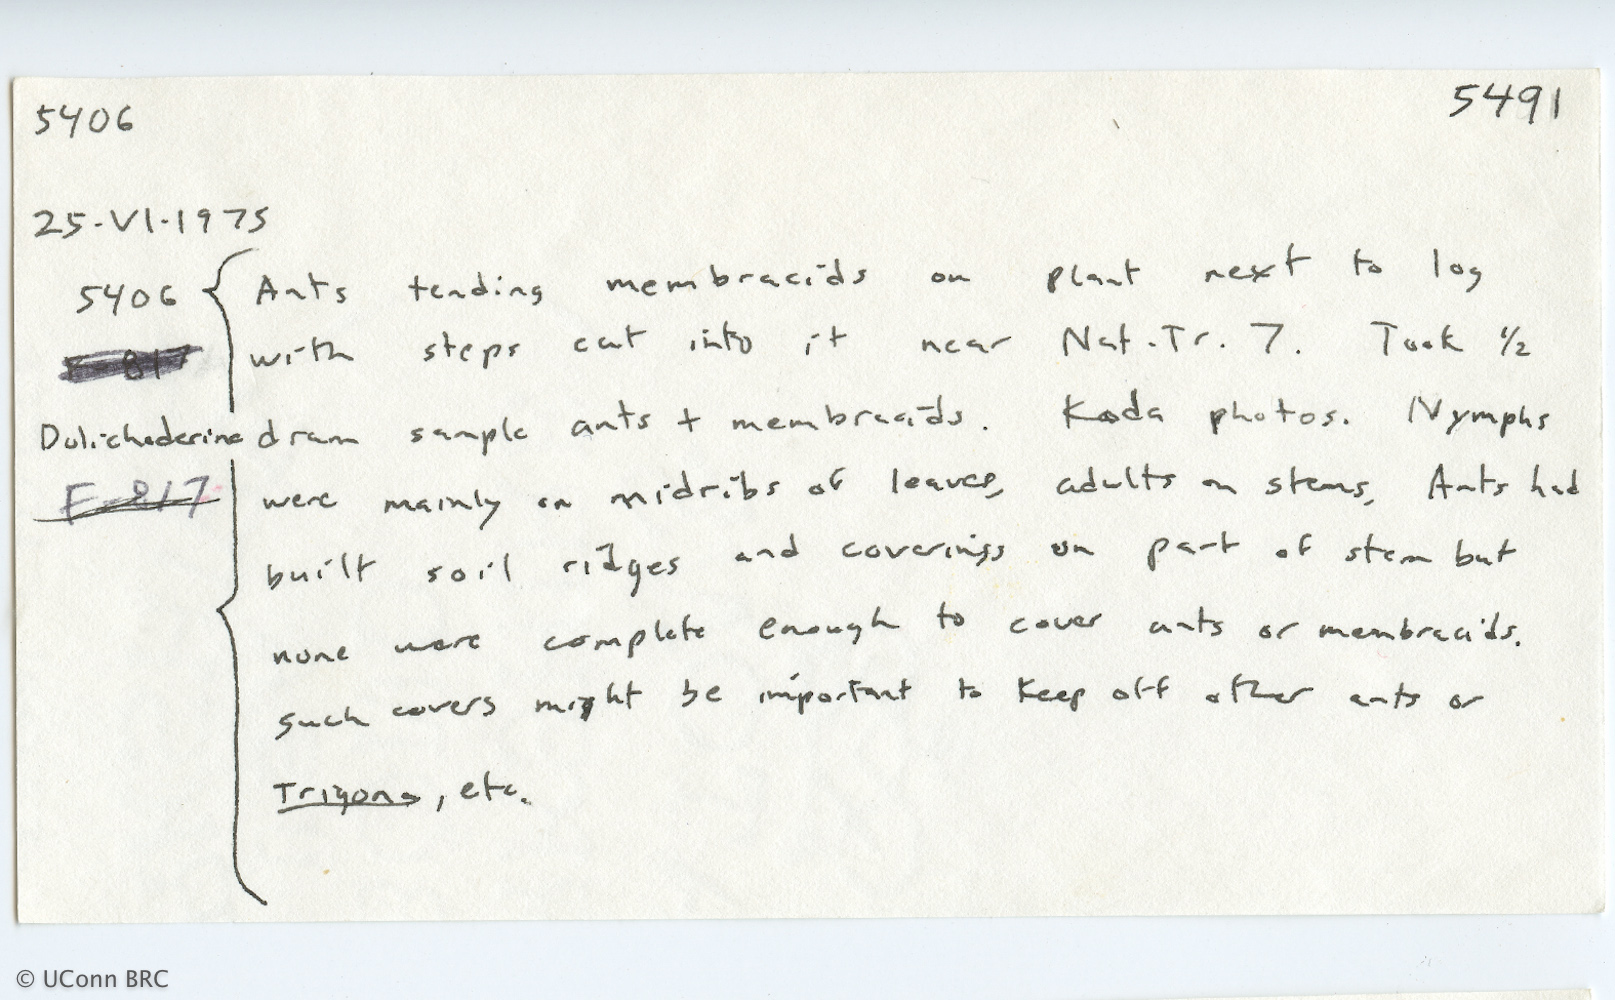 5406 5491
25-VI-1975
5406 Ants tending membracids on plant next to log
F-817 with steps cut into it near Nat. Tr. 7. Took 1/2
Dolichoderine dram sample ants + membracids. Koda photos. Nymphs
F-817 were mainly on midribs of leaves, adults on stems, Ants had
built soil ridges and coverings on part of stem but
none were complete enough to cover ants or membracids.
Such covers might be important to keep off other ants or
Trigona, etc.
© UConn BRC